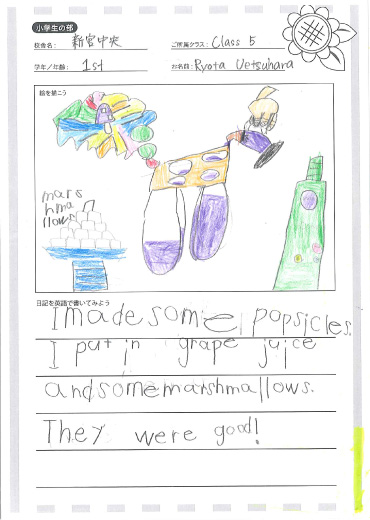 小学生の部
校舎名： 新宮中央 ご所属クラス： Class 5
学年／年齢： 1st お名前： Ryota Uetsuhara
絵を描こう
mars
hma
llows
日記を英語で書いてみよう
I made some popsicles.
I put in grape juice
and some marshmallows.
They were good!